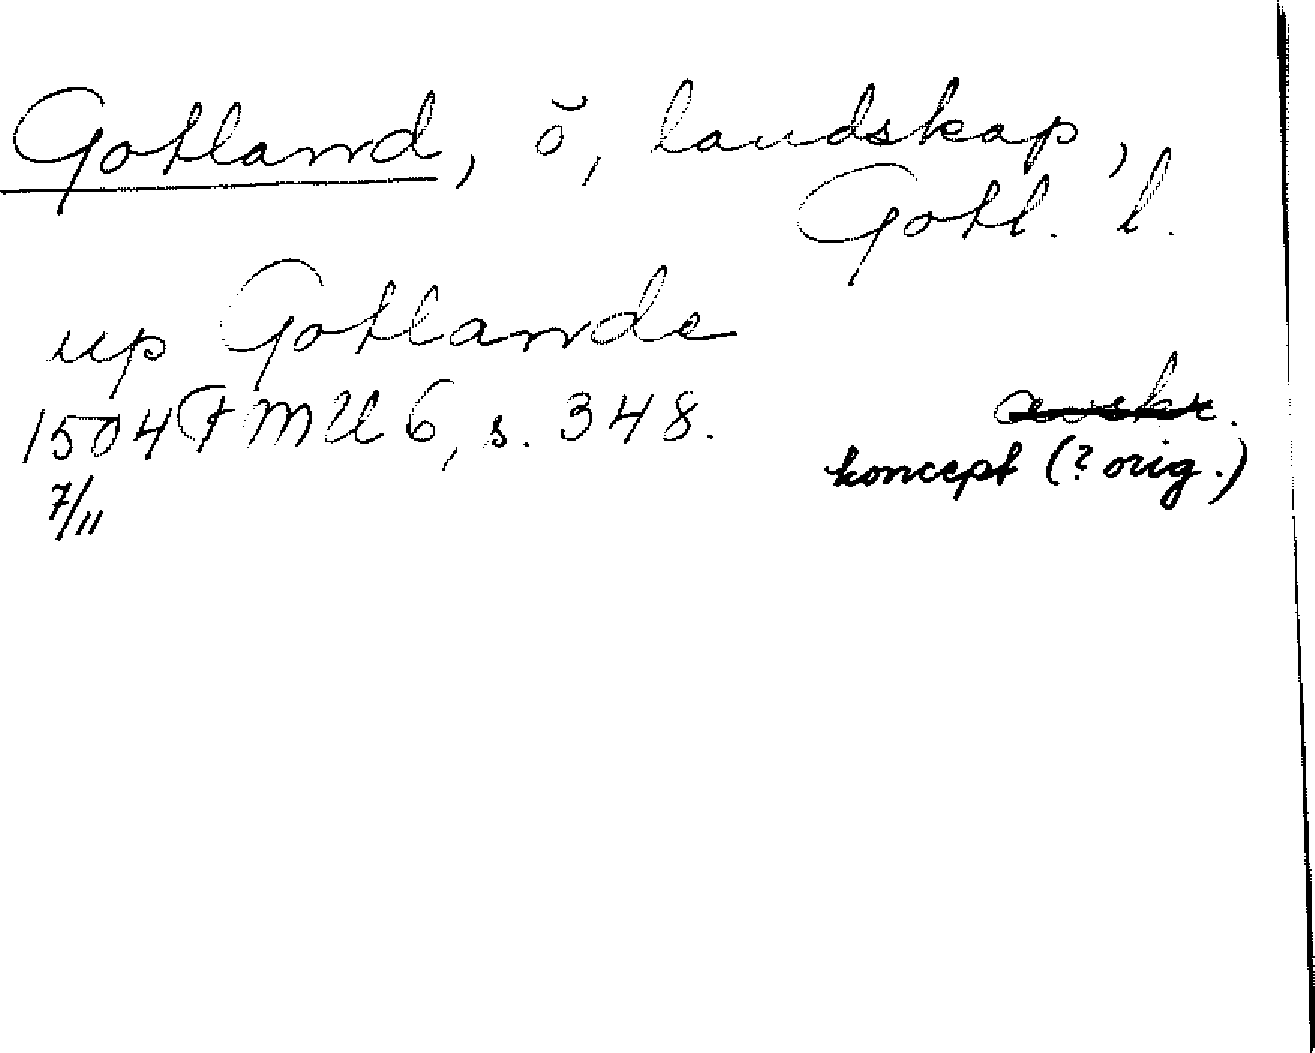 Gotland, ö, landskap,
Gotl. l.
up Gotlande
1504 FMU 6, s. 348. avskr.
7/11 koncept (? orig.)